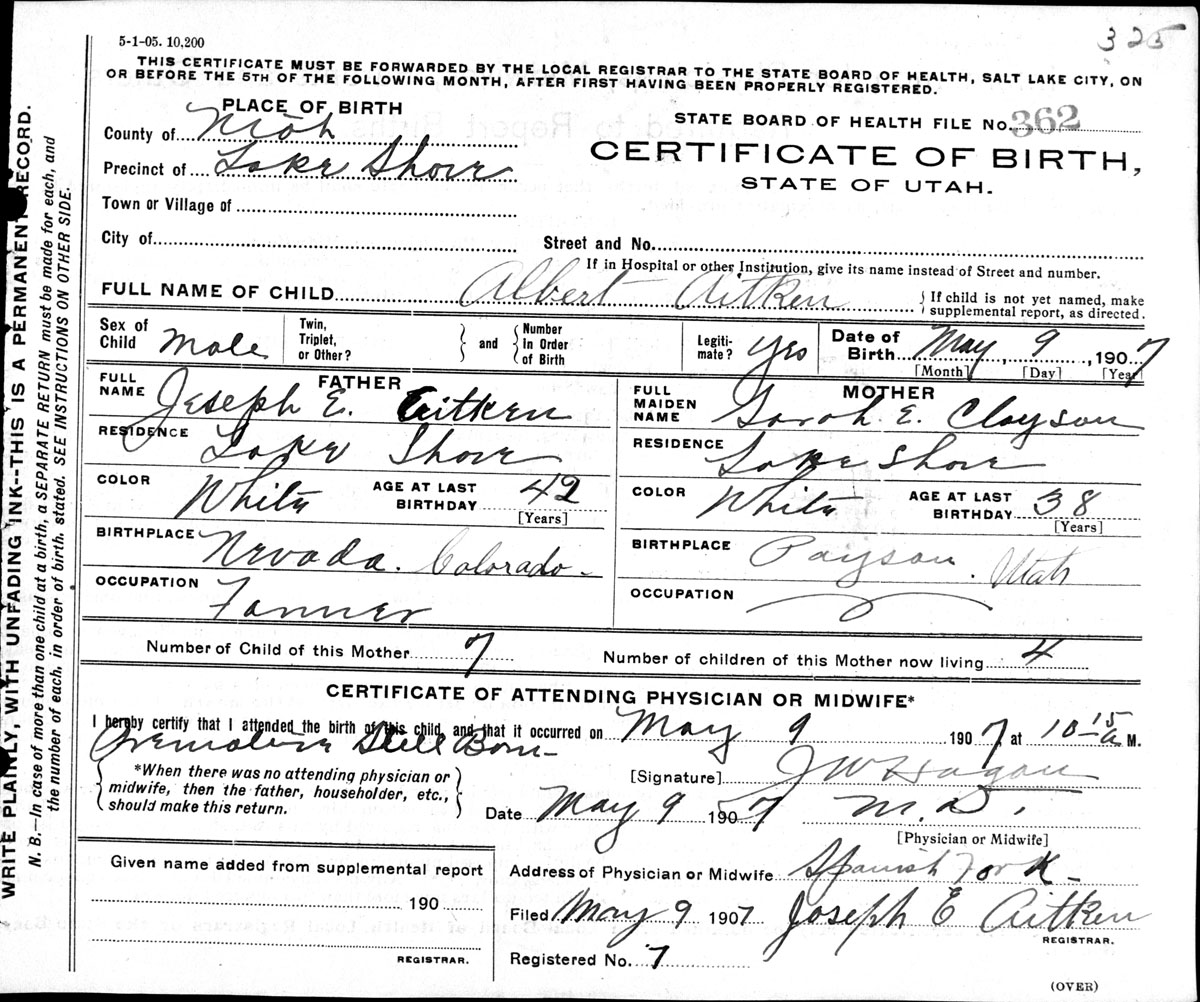 325
5-1-05. 10,200
THIS CERTIFICATE MUST BE FORWARDED BY THE LOCAL REGISTRAR TO THE STATE BOARD OF HEALTH, SALT LAKE CITY, ON
OR BEFORE THE 5TH OF THE FOLLOWING MONTH, AFTER FIRST HAVING BEEN PROPERLY REGISTERED.
PLACE OF BIRTH
County of Utah
Precinct of Lake Shore
Town or Village of
City of
STATE BOARD OF HEALTH FILE No. 362
CERTIFICATE OF BIRTH,
STATE OF UTAH.
Street and No.
If in Hospital or other Institution, give its name instead of Street and number.
FULL NAME OF CHILD Albert Aitken
If child is not yet named, make
supplemental report, as directed.
Sex of Child Male
Twin, Triplet, or Other?
and
Number in Order of Birth
Legiti-mate? yes
Date of Birth May, 9, 1907
[Month] [Day] [Year]
FATHER
FULL NAME Joseph E. Aitken
RESIDENCE Lake Shore
COLOR White AGE AT LAST BIRTHDAY 42
[Years]
BIRTHPLACE Nevada. Colorado.
OCCUPATION Farmer
MOTHER
FULL MAIDEN NAME Sarah E. Clayson
RESIDENCE Lake Shore
COLOR White AGE AT LAST BIRTHDAY 38
[Years]
BIRTHPLACE Payson. Utah
OCCUPATION
Number of Child of this Mother 7
Number of children of this Mother now living 4
CERTIFICATE OF ATTENDING PHYSICIAN OR MIDWIFE*
I hereby certify that I attended the birth of this child, and that it occurred on May 9 1907 at 10 15 a M.
Premature Still Born
*When there was no attending physician or
midwife, then the father, householder, etc.,
should make this return.
[Signature] J W Hagan
Date May 9 1907 M.D.
[Physician or Midwife]
Given name added from supplemental report
190
REGISTRAR.
Address of Physician or Midwife Spanish Fork
Filed May 9 1907 Joseph E Aitken
REGISTRAR.
Registered No. 7
(OVER)
WRITE PLAINLY, WITH UNFADING INK--THIS IS A PERMANENT RECORD.
N. B.—In case of more than one child at a birth, a SEPARATE RETURN must be made for each, and
the number of each, in order of birth, stated. SEE INSTRUCTIONS ON OTHER SIDE.